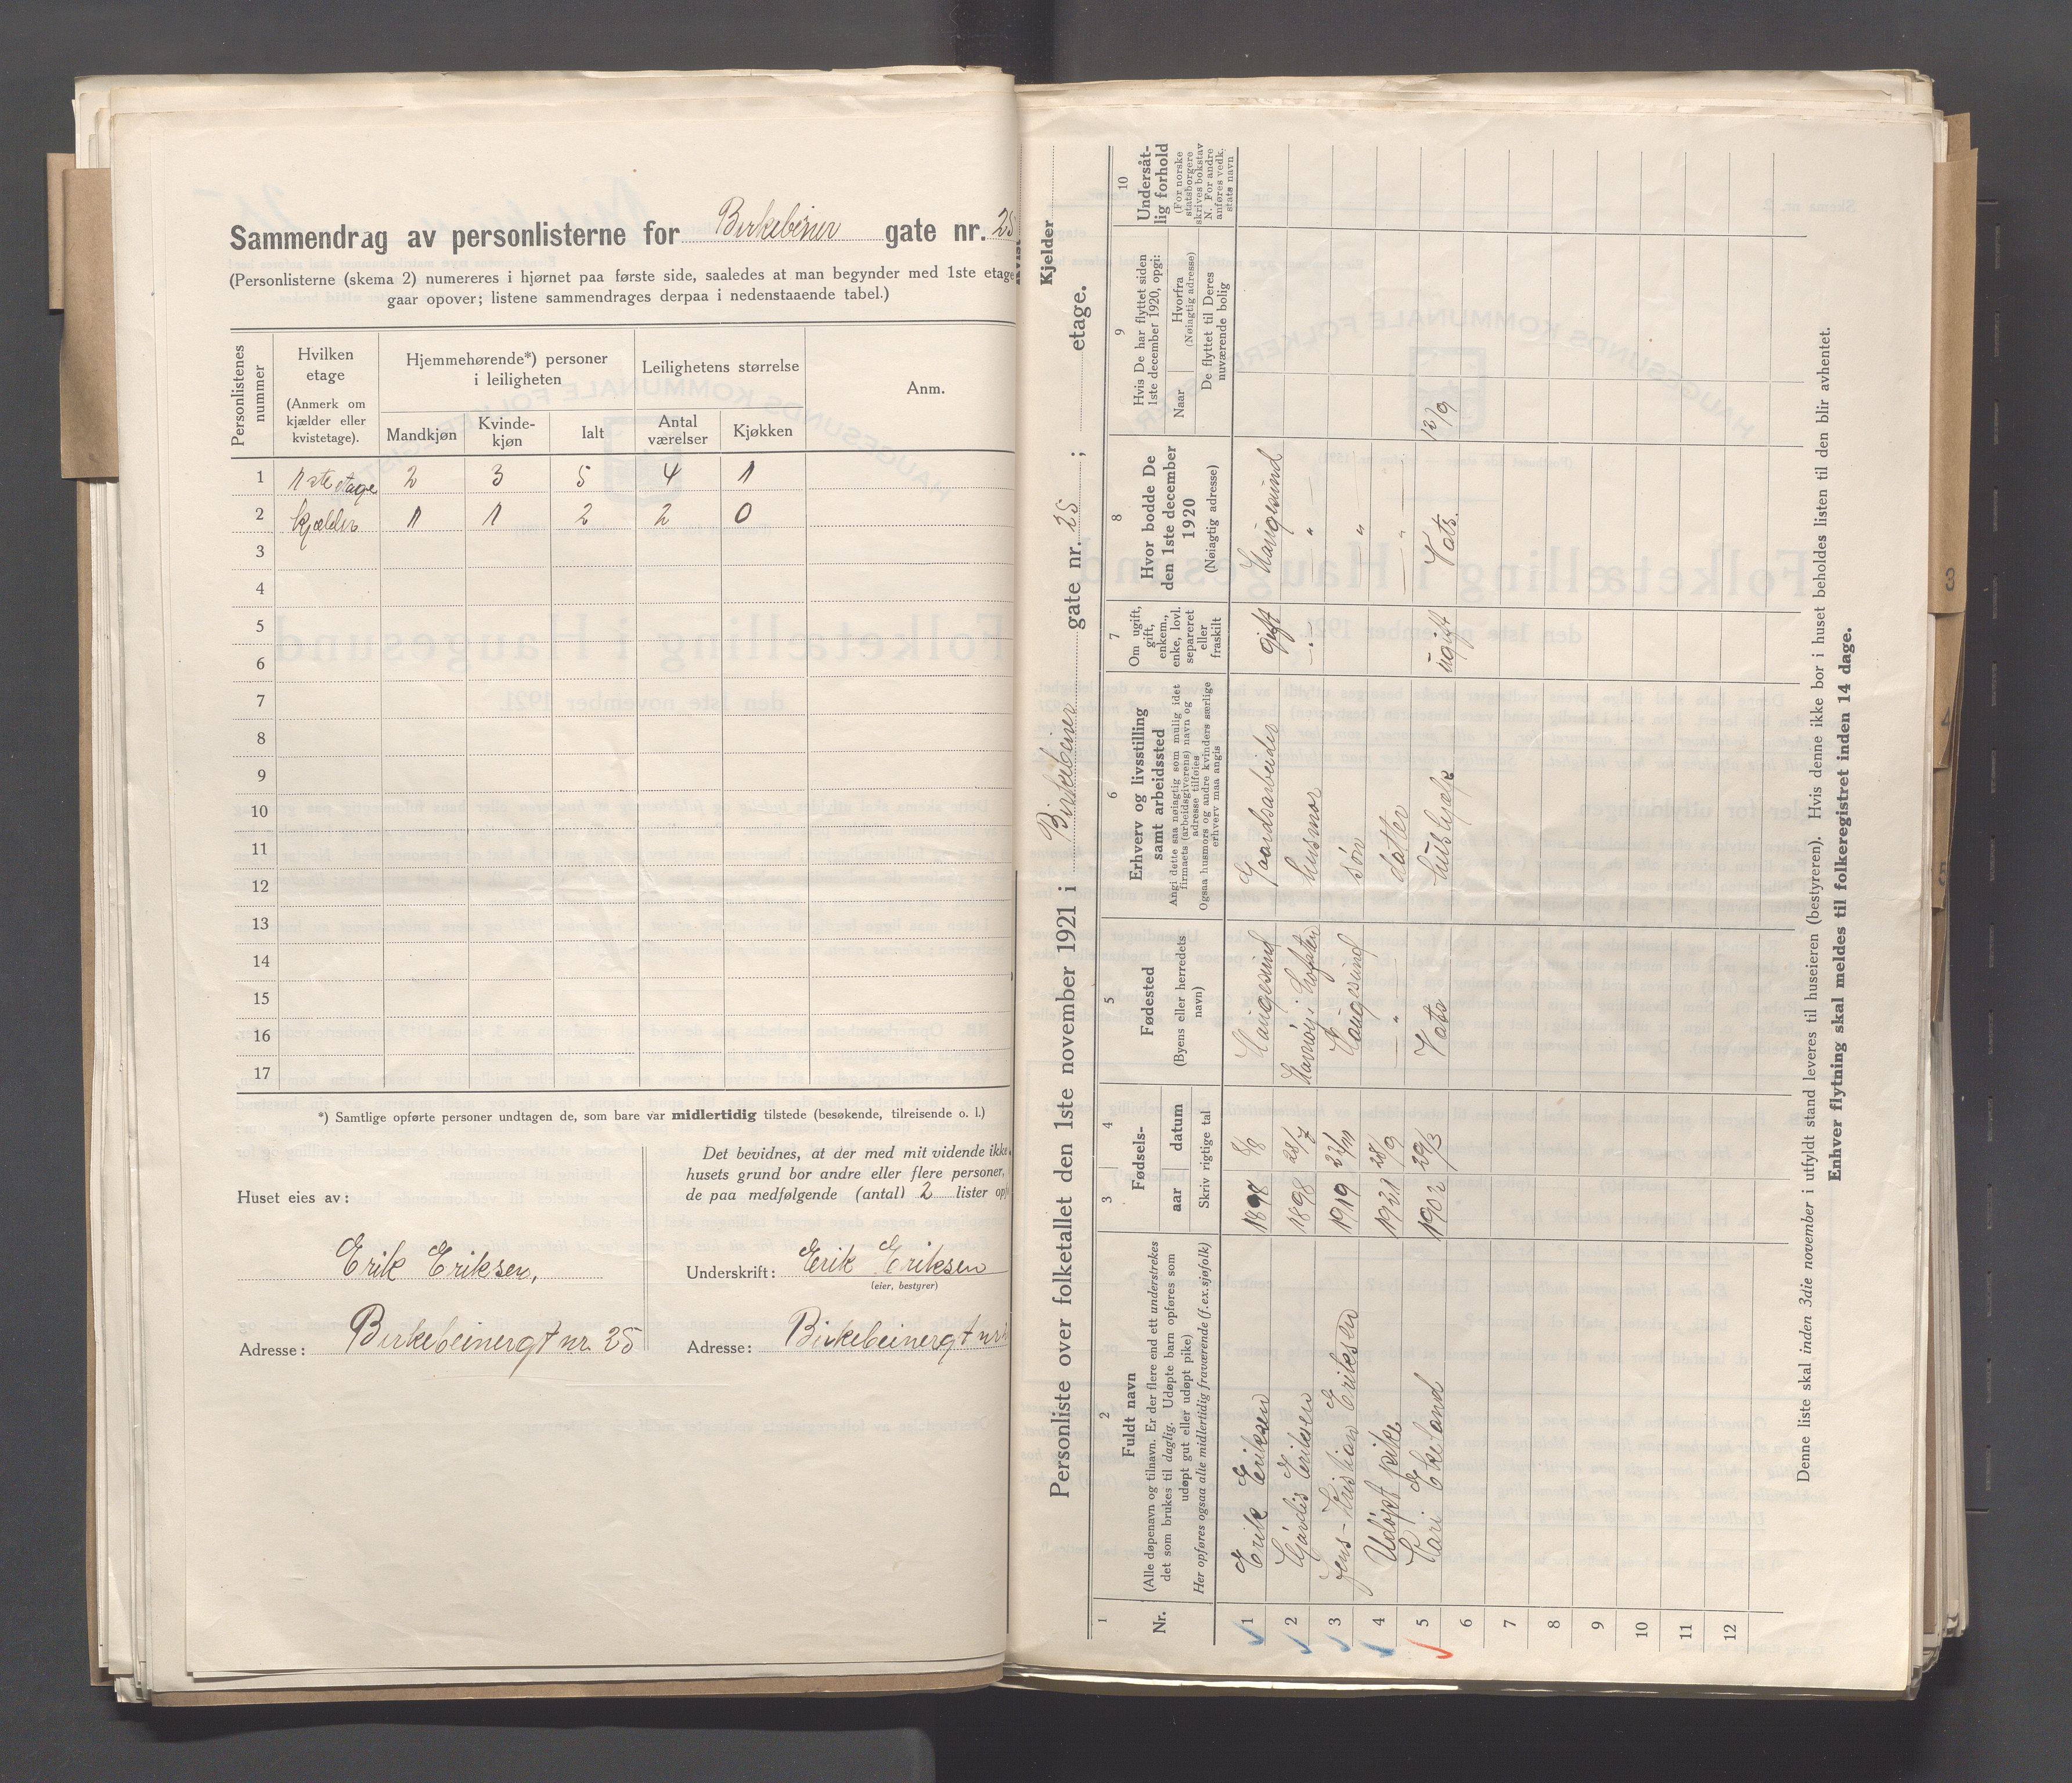 Sammendrag av personlisterne for Birkebeiner gate nr. 25
(Personlisterne (skema 2) numereres i hjørnet paa første side, saaledes at man begynder med 1ste etage
gaar opover; listene sammendrages derpaa i nedenstaaende tabel.)
Personlistenes nummer
Hvilken etage
(Anmerk om kjælder eller kvistetage).
Hjemmehørende*) personer i leiligheten
Leilighetens størrelse
Anm.
Mandkjøn Kvindekjøn Ialt Antal værelser Kjøkken
1 1ste etage 2 3 5 4 1
2 kjælder 1 1 2 2 0
3
4
5
6
7
8
9
10
11
12
13
14
15
16
17
*) Samtlige opførte personer undtagen de, som bare var midlertidig tilstede (besøkende, tilreisende o. l.)
Huset eies av:
Erik Eriksen,
Adresse: Birkebeinergt nr. 25
Det bevidnes, at der med mit vidende ikke
husets grund bor andre eller flere personer,
de paa medfølgende (antal) 2 lister
Underskrift: Erik Eriksen
(eier, bestyrer)
Adresse: Birkebeinergt nr
Personliste over folketallet den 1ste november 1921 i Birkebeiner gate nr. 25 ; etage.
Kjelder
1
Nr.
2
Fuldt navn
(Alle døpenavn og tilnavn. Er der flere end ett understrekes
det som brukes til daglig. Udøpte barn opføres som
udøpt gut eller udøpt pike)
Her opføres ogsaa alle midlertidig fraværende (f.ex.sjøfolk)
3 4
Fødsels-
aar datum
Skriv rigtige tal
5
Fødested
(Byens eller herredets navn)
6
Erhverv og livsstilling
samt arbeidssted
Angi dette saa nøiagtig som mulig idet
firmaets (arbeidsgiverens) navn og
adresse tilføies
Ogsaa husmors og andre kvinders særlige
erhverv maa angis
7
Om ugift,
gift,
enkem.,
enke, lovl.
separeret
eller
fraskilt
8
Hvor bodde De
den 1ste december
1920
(Nøiagtig adresse)
9
Hvis De har flyttet siden
1ste december 1920, opgi:
Naar
Hvorfra
(Nøiagtig adresse)
De flyttet til Deres
nuværende bolig
10
Undersåt-
lig forhold
(For norske
statsborgere
skrives bokstav
N. For andre
anføres vedk.
stats navn
1 Erik Eriksen 1898 8/8 Haugesund Gaardsarbeider gift Haugesund
2 Hjørdis Eriksen 1898 28/7 husmor — " —
3 Jens-Kristian Eriksen 1919 Haugesund søn "
4 Udøpt pike 1921 28/9 — " — datter — " —
5 Kari Ekeland 1902 29/3 Vats hushjælp ugift Vats. 12/9
6
7
8
9
10
11
12
Denne liste skal inden 3die november i utfyldt stand leveres til huseieren (bestyreren). Hvis denne ikke bor i huset beholdes listen til den blir avhentet.
Enhver flytning skal meldes til folkeregistret inden 14 dage.
3
4